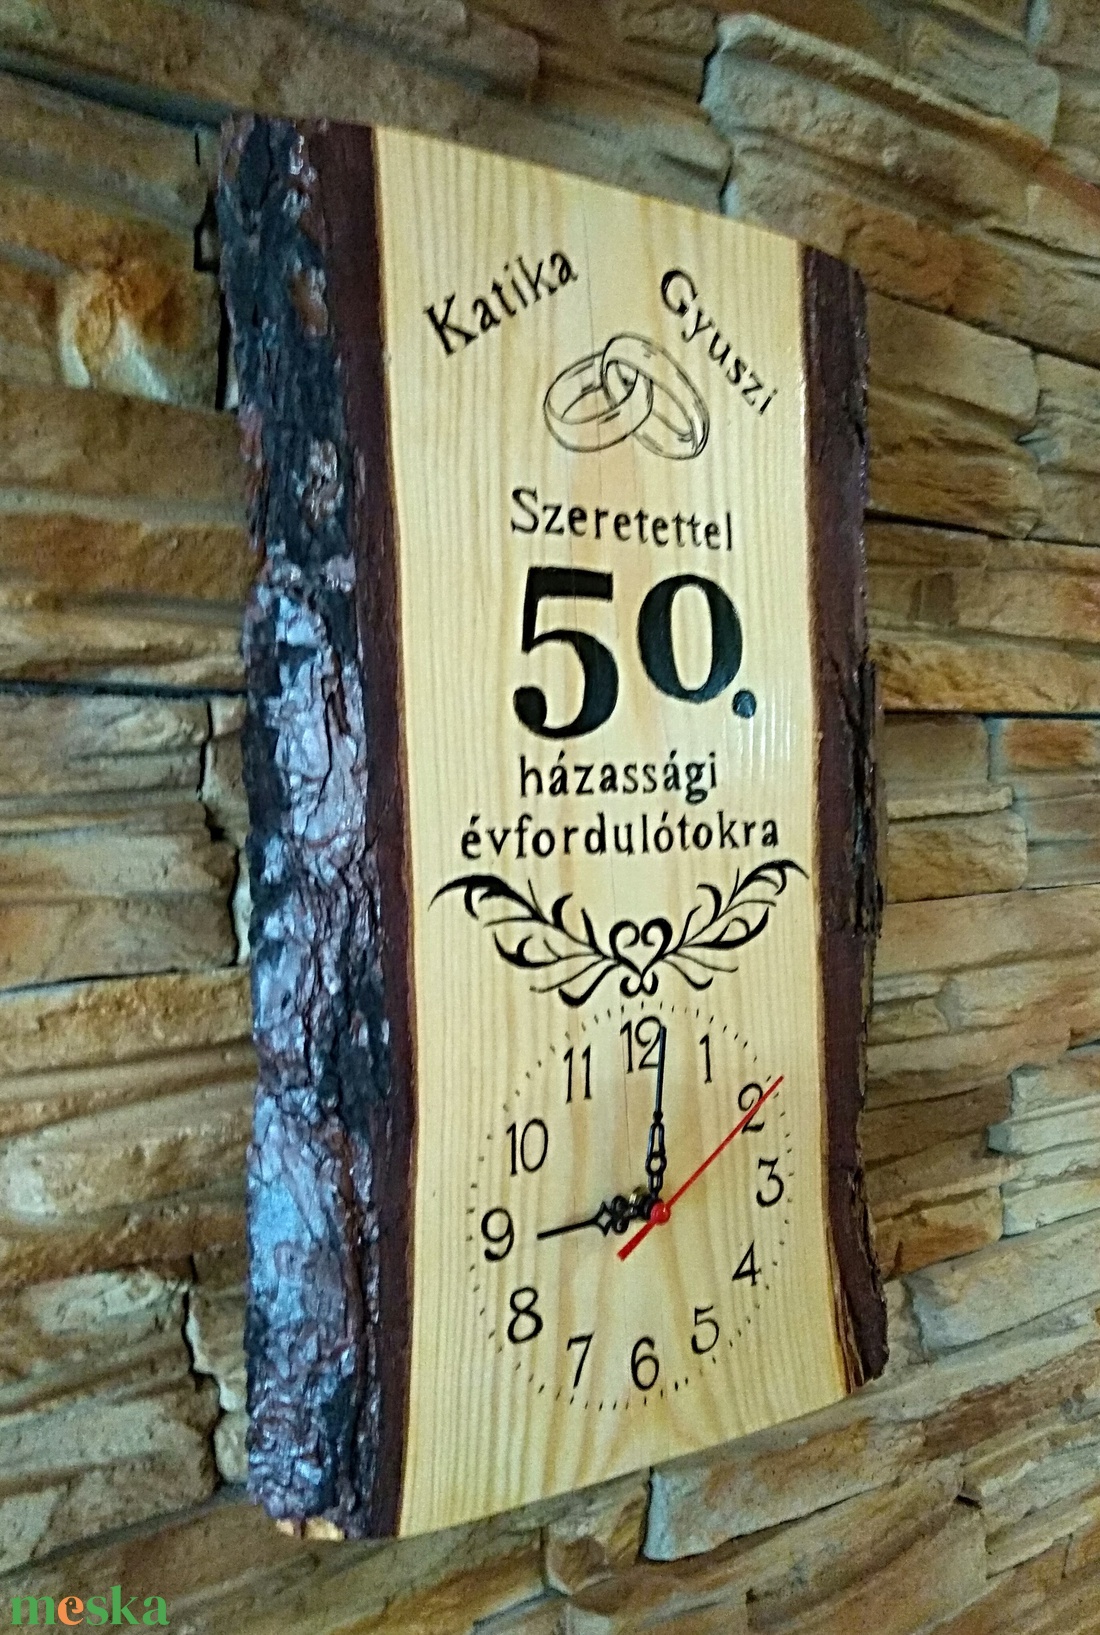 Katika Gyuszi
Szeretettel
50.
házassági
évfordulótokra
12
11 1
10 2
9 3
8 4
7 6 5
meska